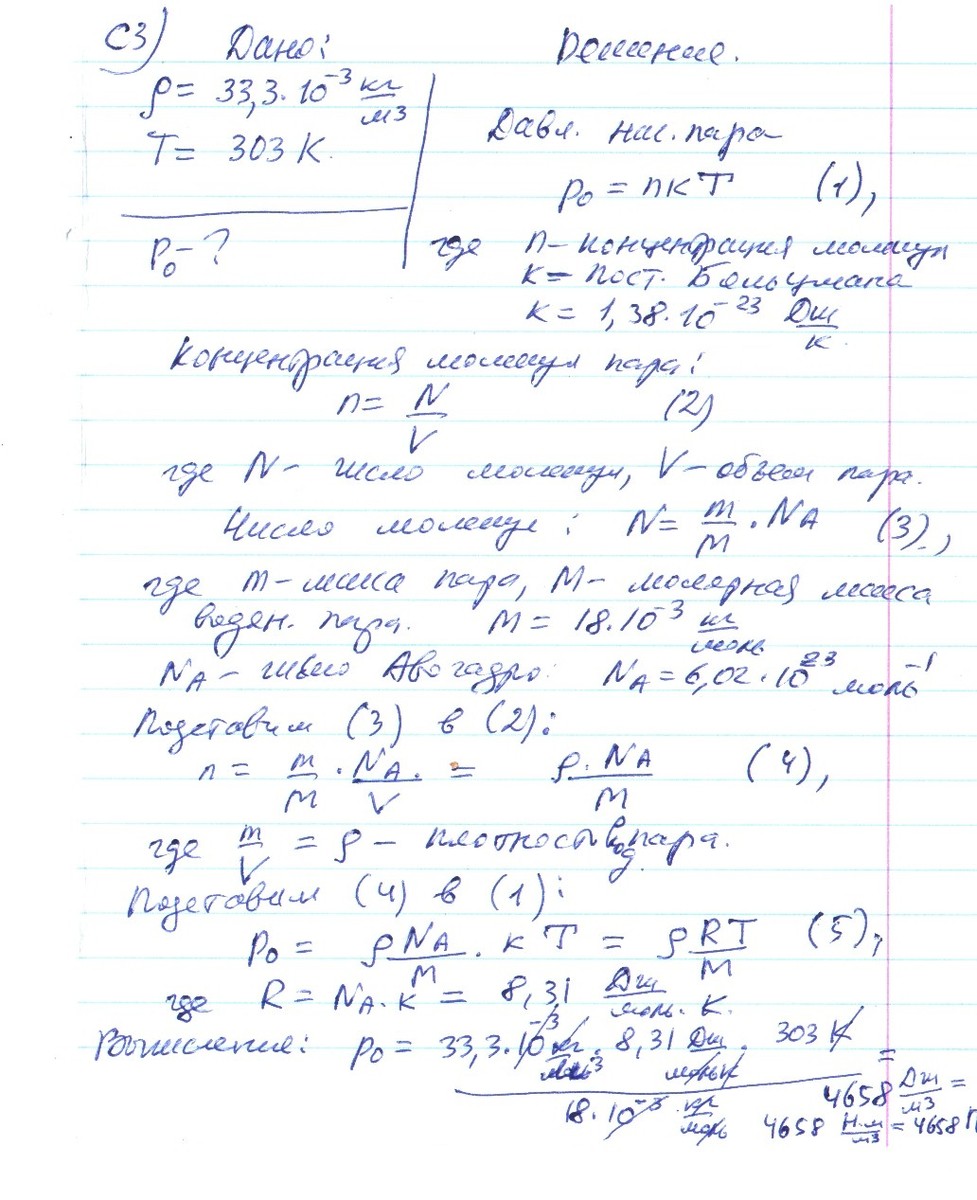 С3) Дано:
ρ = 33,3·10⁻³ кг/м3
T = 303 К.
P₀ – ?
Решение.
Давл. нас. пара
p₀ = nкT (1),
где n – концентрация молекул
к – пост. Больцмана
к = 1,38·10⁻²³ Дж/К.
Концентрация молекул пара:
n = N/V (2)
где N – число молекул, V – объем пара.
Число молекул: N = m/M · NA (3),
где m – масса пара, M – молярная масса
водян. пара. M = 18·10⁻³ кг/моль
NA – число Авогадро: NA = 6,02·10²³ моль⁻¹
Подставим (3) в (2):
n = m/M · NA/V = ρ·NA/M (4),
где m/V = ρ – плотность вод. пара.
Подставим (4) в (1):
p₀ = ρNA/M · кT = ρRT/M (5),
где R = NA·к = 8,31 Дж/моль·К.
Вычисления: p₀ = 33,3·10⁻³ · 8,31 Дж/моль·К · 303 К =
18·10⁻³ кг/моль
4658 Дж/м3 =
4658 Н·м/м3 = 4658 П